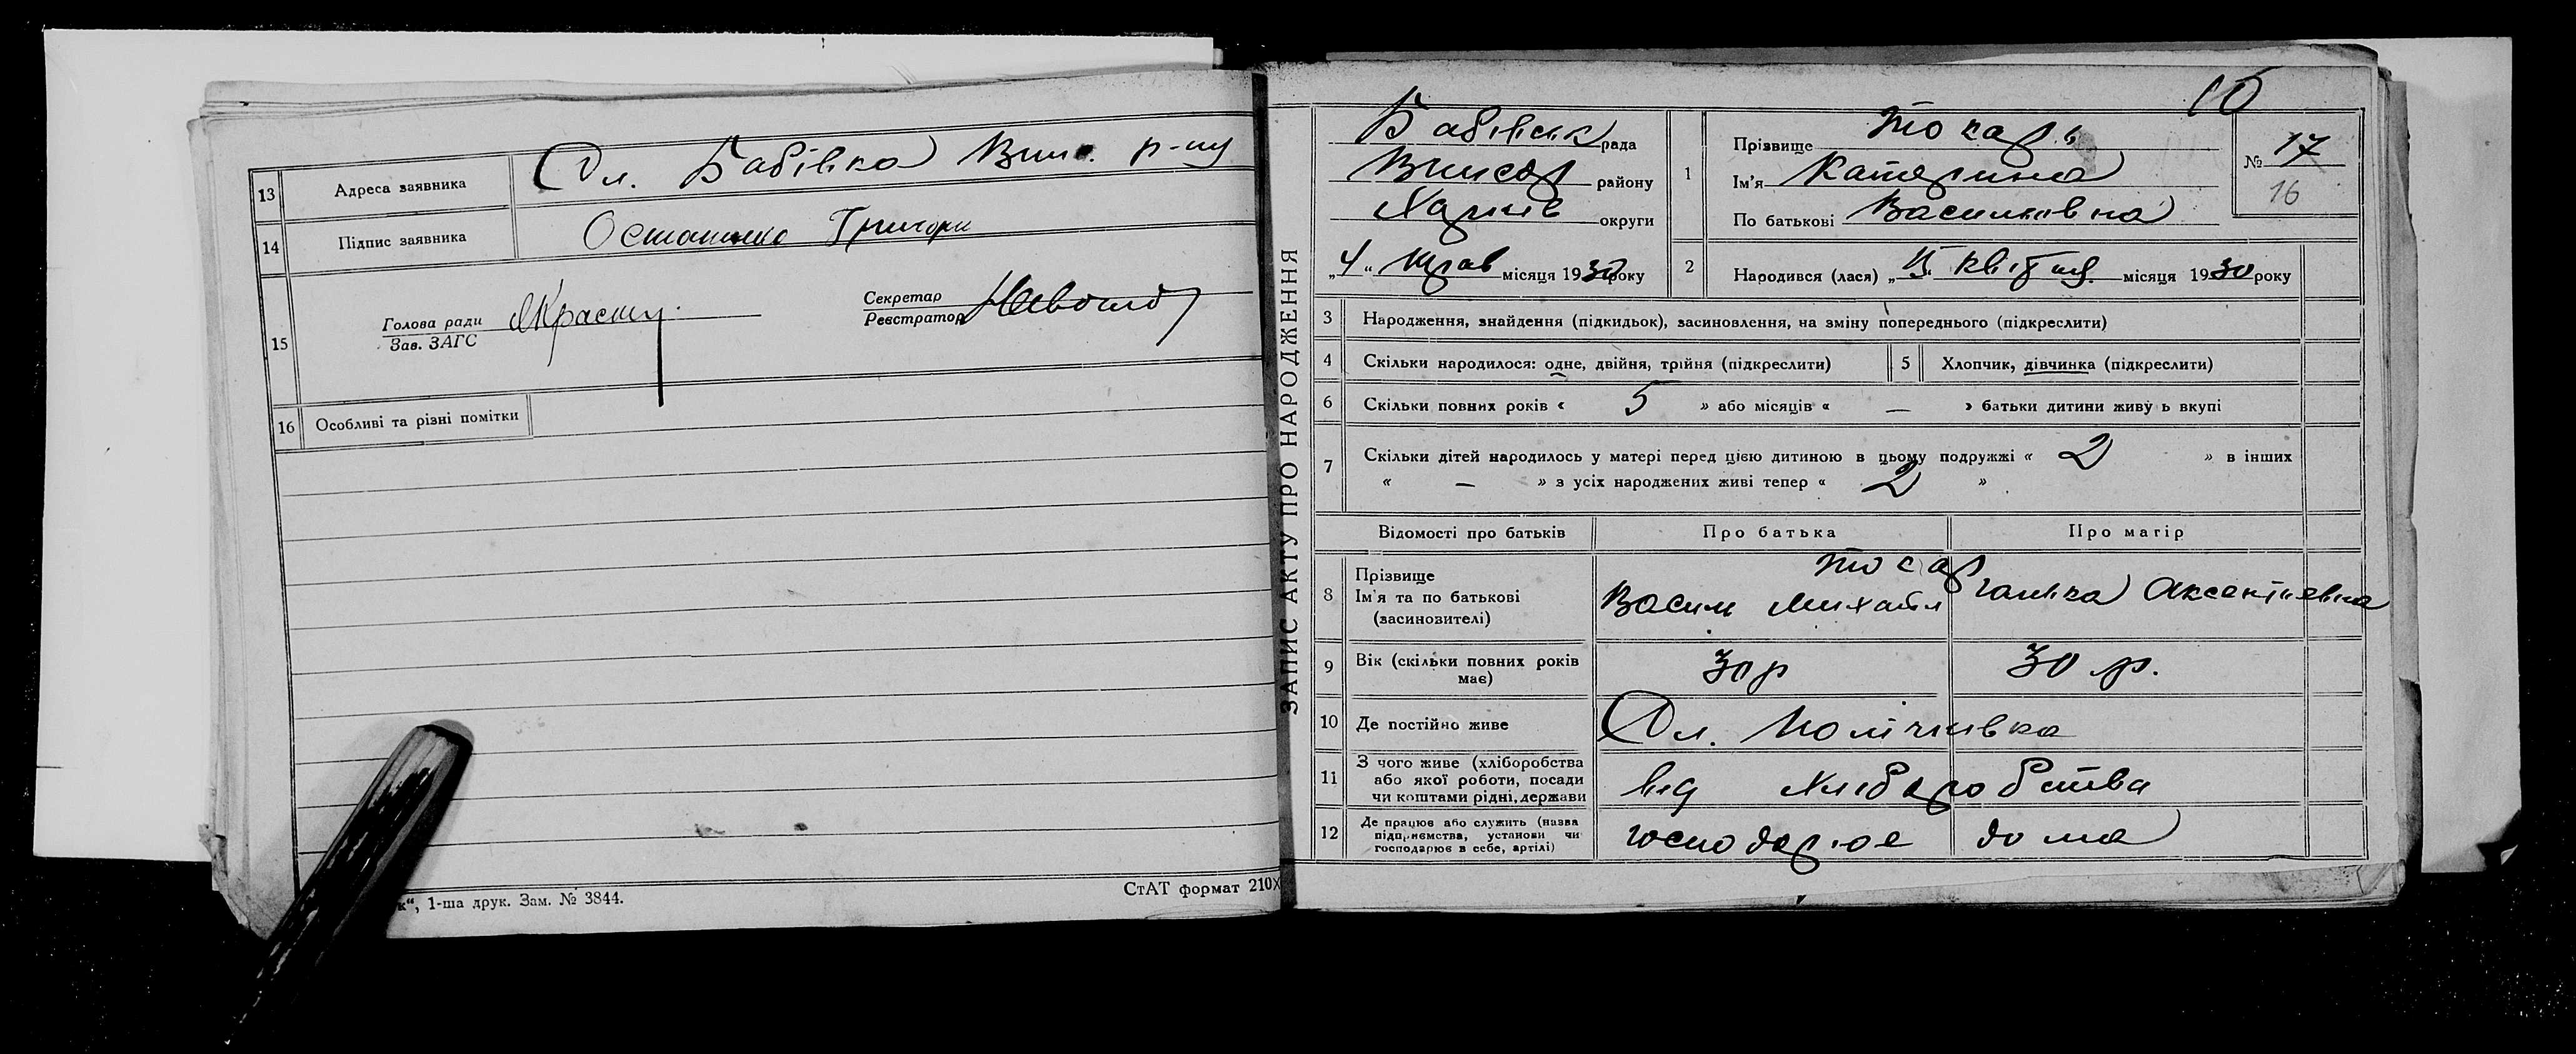 13 Адреса заявника Сл. Бабівка Вил. р-ну
14 Підпис заявника Остапенко Григори
15 Голова ради
Зав. ЗАГС
Секретар
Реєстратор
16 Особливі та різні помітки
к", 1-ша друк. Зам. № 3844.
СтАТ формат 210Х
ЗАПИС АКТУ ПРО НАРОДЖЕННЯ
Бабівськ рада
району
Харків округи
„4" трав місяця 1930 року
1 Прізвище Токарь
Ім'я Катерина
По батькові Васильівна
№ 17
16
2 Народився (лася) квітня місяця 1930 року
3 Народження, знайдення (підкидьок), засиновлення, на зміну попереднього (підкреслити)
4 Скільки народилося: одне, двійня, трійня (підкреслити)
5 Хлопчик, дівчинка (підкреслити)
6 Скільки повних років « 5 » або місяців « — » батьки дитини живу ь вкупі
7 Скільки дітей народилось у матері перед цією дитиною в цьому подружжі « 2 » в інших
« — » з усіх народжених живі тепер « 2 »
Відомості про батьків Про батька Про матір
8 Прізвище
Ім'я та по батькові
(засиновителі)
Токар
Васил Михайл Галька Аксентіевна
9 Вік (скільки повних років
має)
30 р 30 р.
10 Де постійно живе Сл.
11 З чого живе (хліборобства
або якої роботи, посади
чи коштами рідні, держави
від хліборобства
12 Де працює або служить (назва
підприємства, установи чи
господарює в себе, артілі)
господарює дома